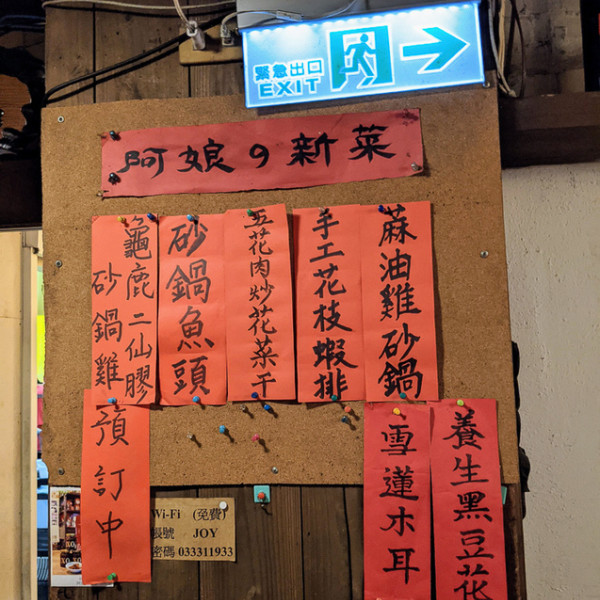 緊急出口
EXIT
阿娘の新菜
麻油雞砂鍋
手工花枝蝦排
五花肉炒花菜干
砂鍋魚頭
龜鹿二仙膠
砂鍋雞
預訂中
養生黑豆花
雪蓮木耳
Wi-Fi (免費)
帳號 JOY
密碼 033311933